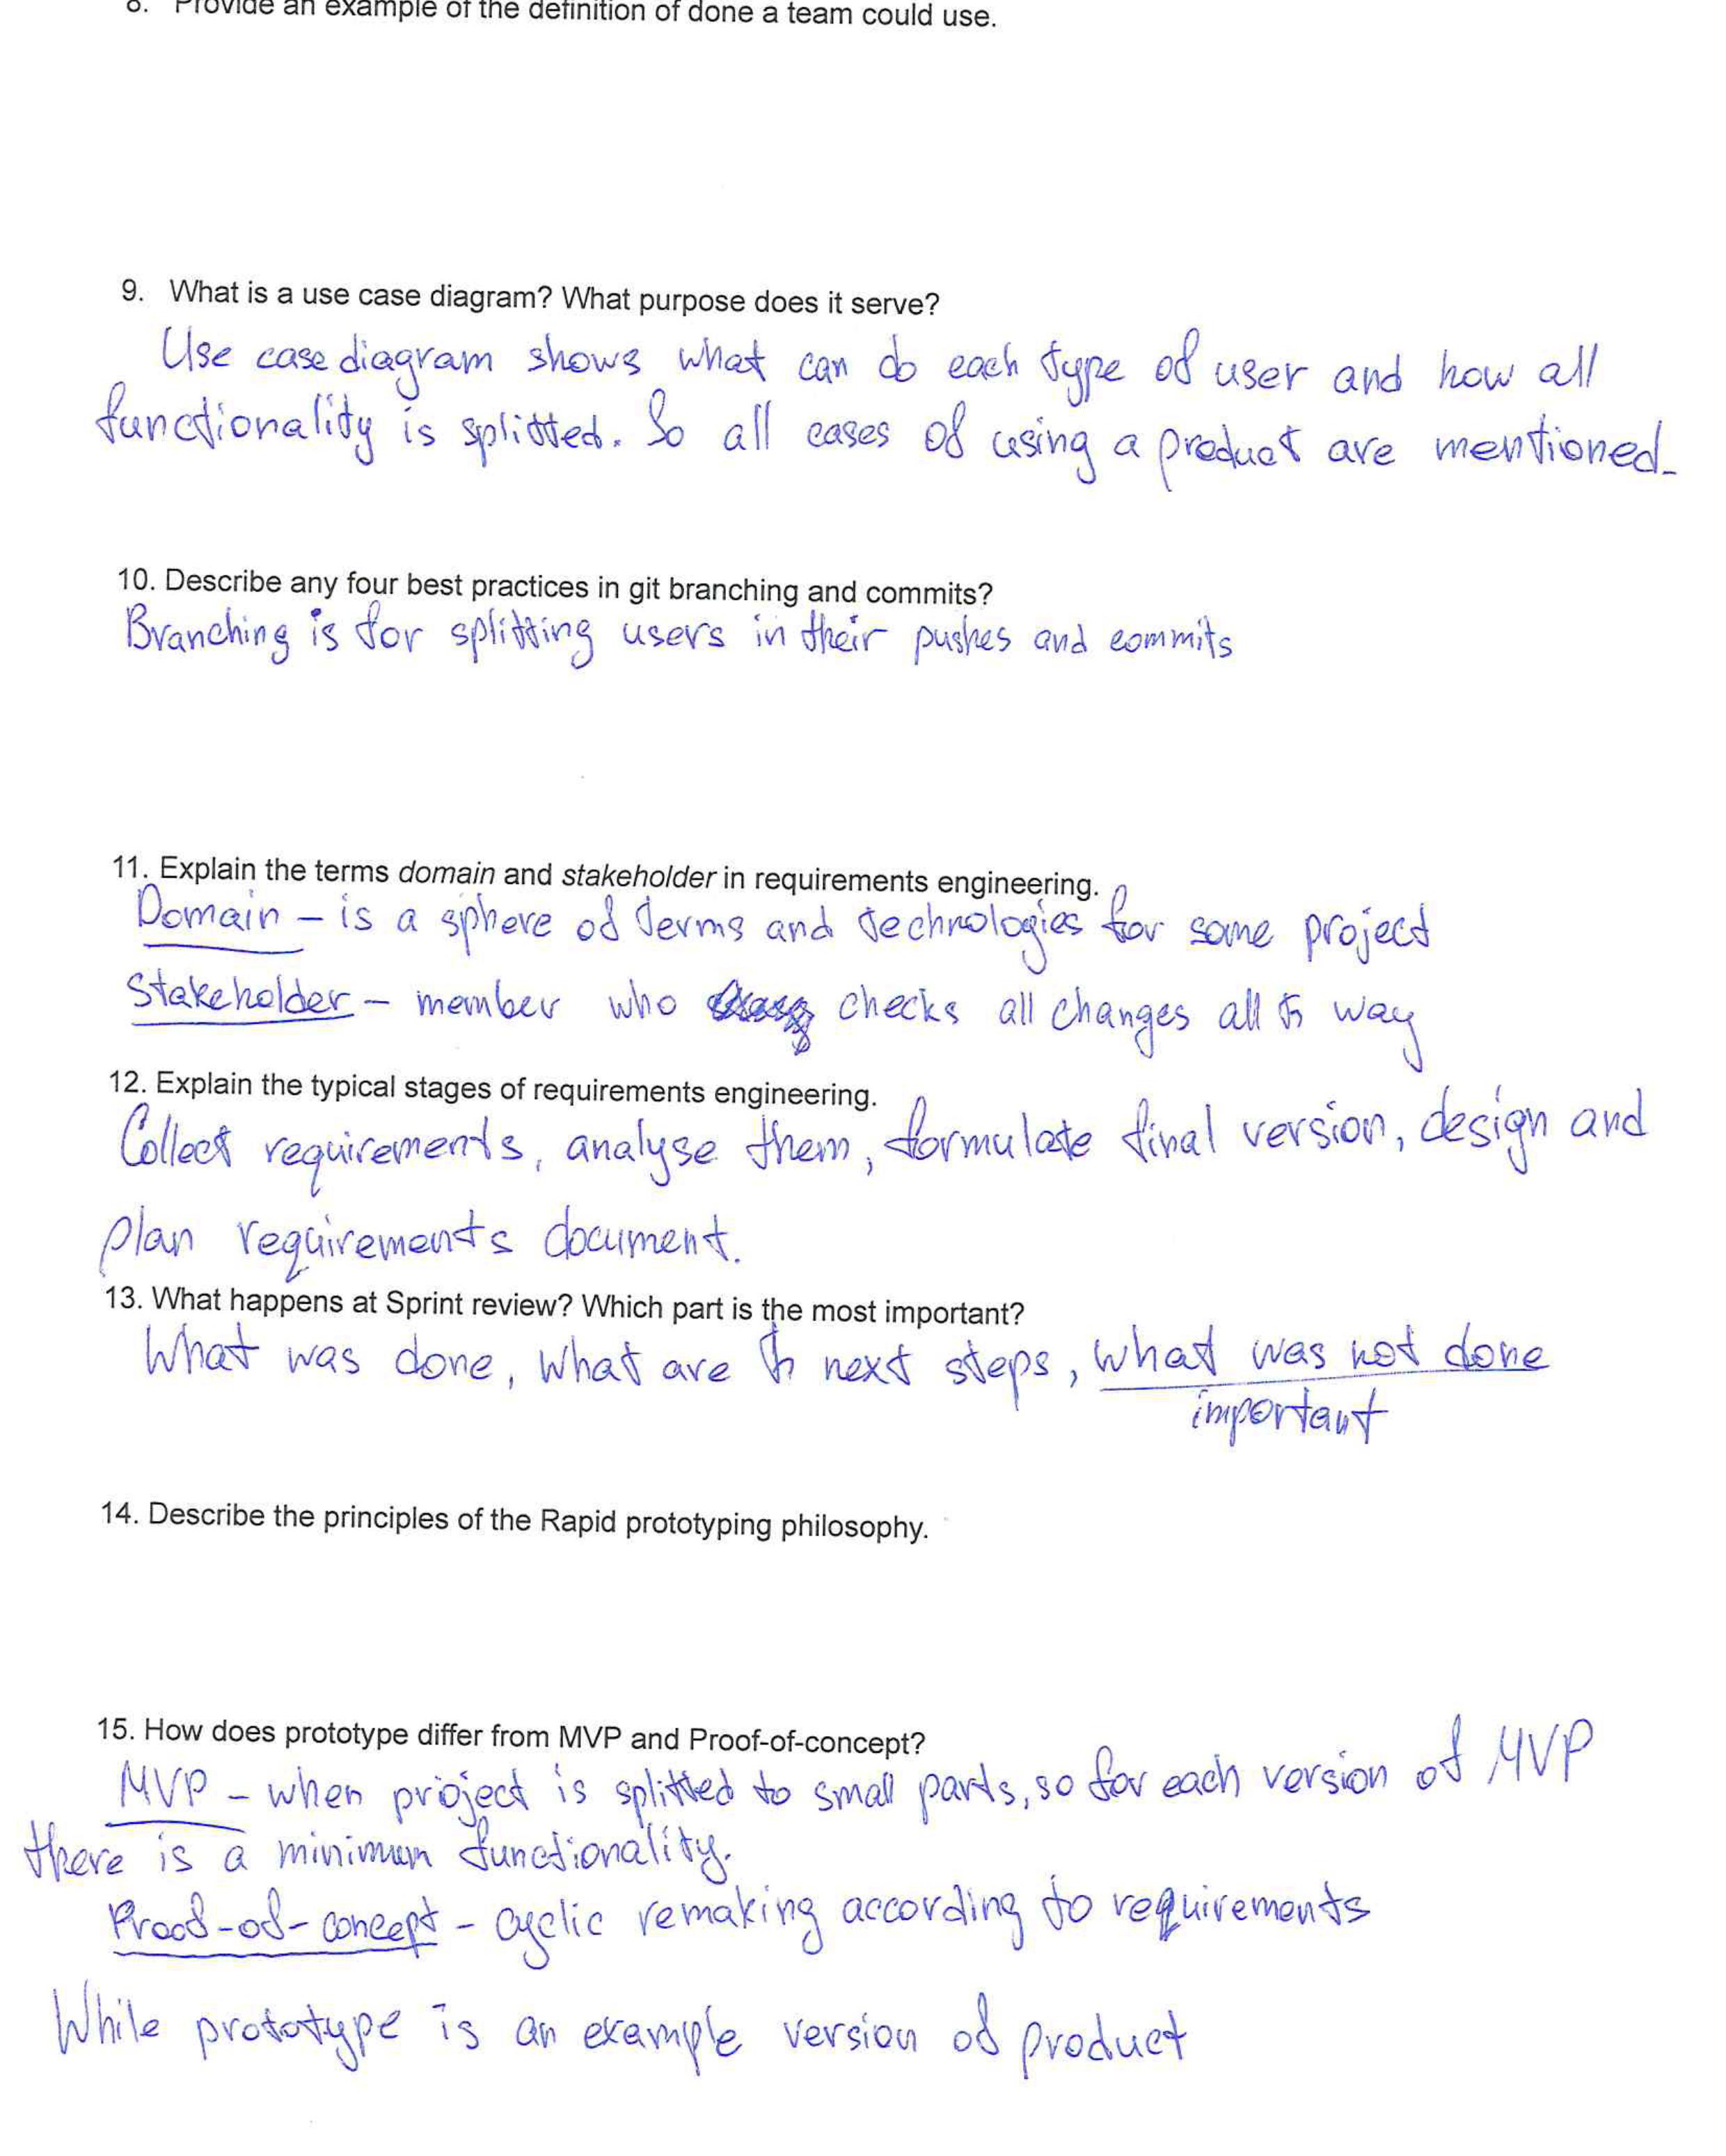 8. Provide an example of the definition of done a team could use.
9. What is a use case diagram? What purpose does it serve?
Use case diagram shows what can do each type of user and how all
functionality is splitted. So all cases of using a product are mentioned.
10. Describe any four best practices in git branching and commits?
Branching is for splitting users in their pushes and commits
11. Explain the terms domain and stakeholder in requirements engineering.
Domain – is a sphere of terms and technologies for some project
Stakeholder – member who checks all changes all way
12. Explain the typical stages of requirements engineering.
Collect requirements, analyse them, formulate final version, design and
plan requirements document.
13. What happens at Sprint review? Which part is the most important?
What was done, what are next steps, what was not done
important
14. Describe the principles of the Rapid prototyping philosophy.
15. How does prototype differ from MVP and Proof-of-concept?
MVP – when project is splitted to small parts, so for each version of MVP
there is a minimum functionality.
Proof-of-concept – cyclic remaking according to requirements
While prototype is an example version of product